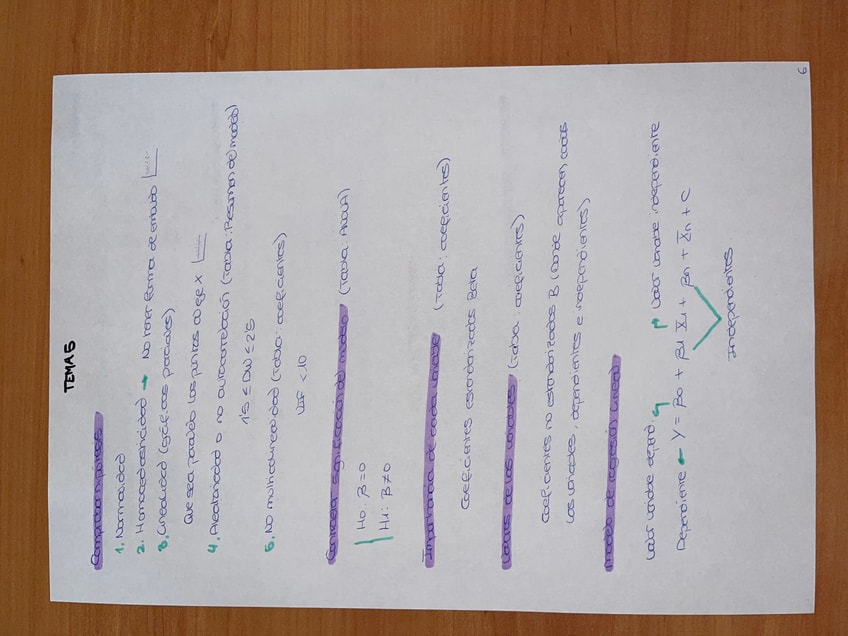 TEMA 5
Comprobar hipótesis
1. Normalidad
2. Homocedasticidad → No tener forma de embudo
3. Linealidad (gráficos parciales)
Que sea paralelo los puntos al eje X
4. Aleatoriedad o no autocorrelación (Tabla: Resumen del modelo)
1'5 ≤ DW ≤ 2'5
5. No multicolinealidad (Tabla: coeficientes)
VIF < 10
Contrastar significación del modelo (Tabla: ANOVA)
H0: β = 0
H1: β ≠ 0
Importancia de cada variable (Tabla: coeficientes)
Coeficientes estandarizados Beta
Valores de las variables (Tabla: coeficientes)
Coeficientes no estandarizados B (Donde aparecen todas
las variables, dependientes e independientes)
Modelo de regresión lineal
Valor variable depend. Valor variable independiente
Dependiente ← Y = β0 + β1 X1 + βn + Xn + C
Independientes.
6